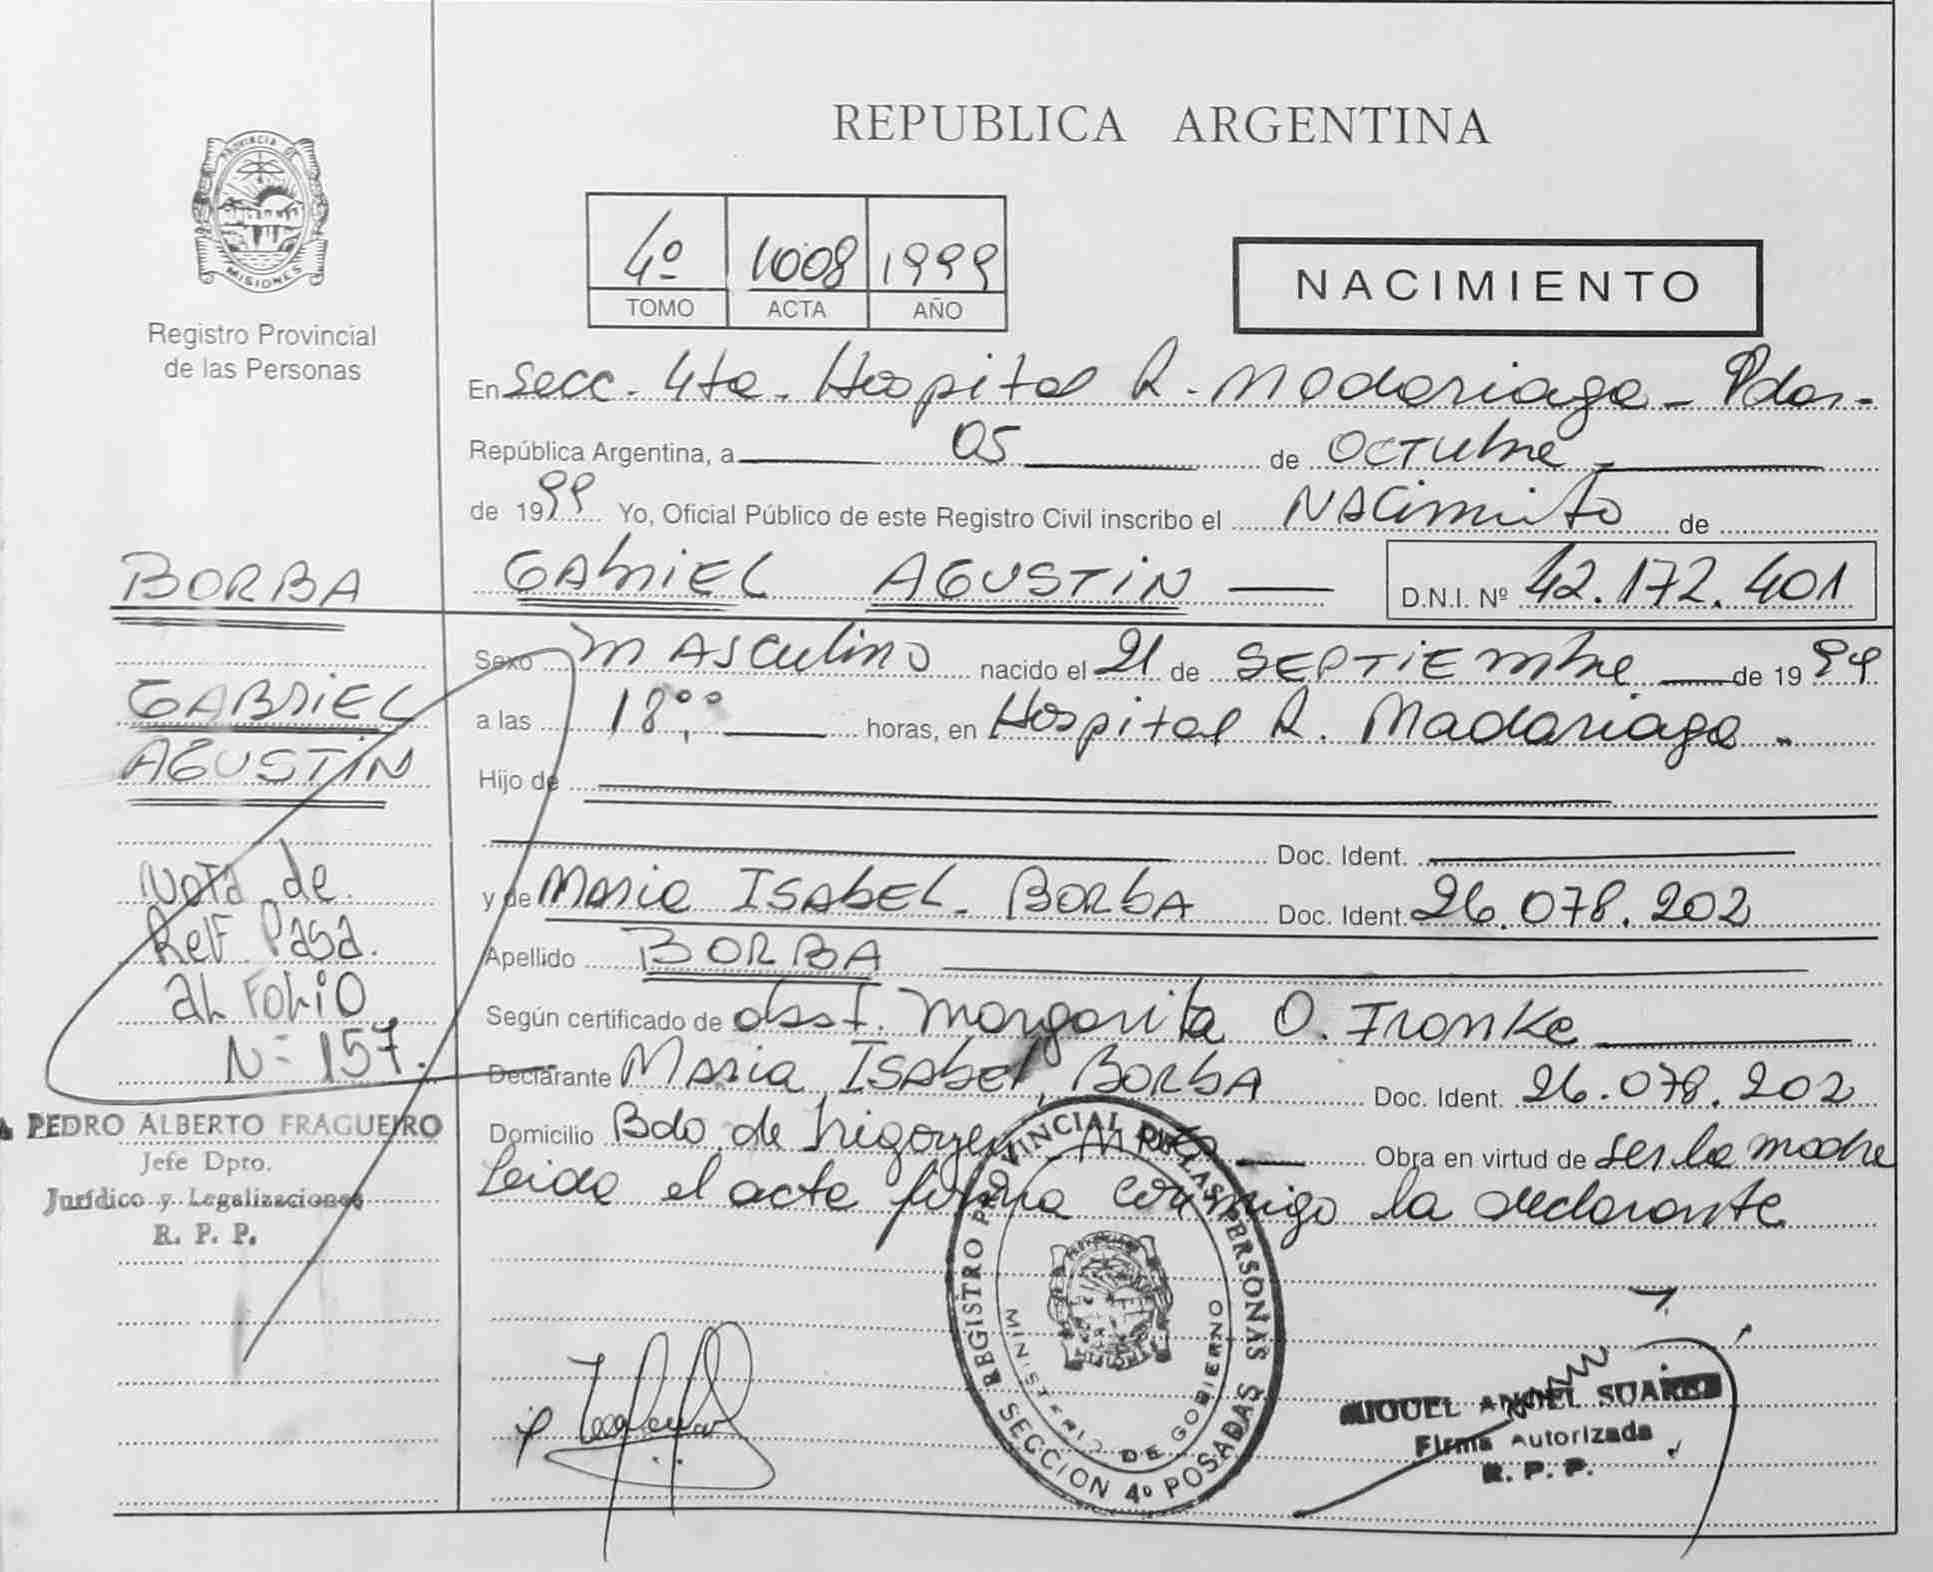 REPUBLICA ARGENTINA
PROVINCIA DE
MISIONES
Registro Provincial
de las Personas
4º 1008 1999
TOMO ACTA AÑO
NACIMIENTO
En Secc. 4ta. Hospital R. Madariaga - Pdas.
República Argentina, a 05 de Octubre
de 1999 Yo, Oficial Público de este Registro Civil inscribo el Nacimiento de
BORBA
GABRIEL AGUSTIN D.N.I. Nº 42.172.401
Sexo Masculino nacido el 21 de SEPTIEmbre de 1999
GABRIEL
AGUSTIN
a las 18:00 horas, en Hospital R. Madariaga.
Hijo de
Doc. Ident.
y de Maria ISAbEL BORbA Doc. Ident. 26.078.202
Apellido BORBA
Nota de
Ref Pasa
al Folio
N= 157.
Según certificado de obst. Margarita O. Fronke
Declarante Maria ISAbel BORbA Doc. Ident. 26.078.202
Domicilio Bdo de Irigoyen Obra en virtud de ser la madre
Leida el acta firma conmigo la declarante
PEDRO ALBERTO FRAGUEIRO
Jefe Dpto.
Jurídico y Legalizaciones
R. P. P.
REGISTRO PROVINCIAL DE LAS PERSONAS
MINISTERIO DE GOBIERNO
SECCION 4º POSADAS
MIGUEL ANGEL SUAREZ
Firma Autorizada
R. P. P.